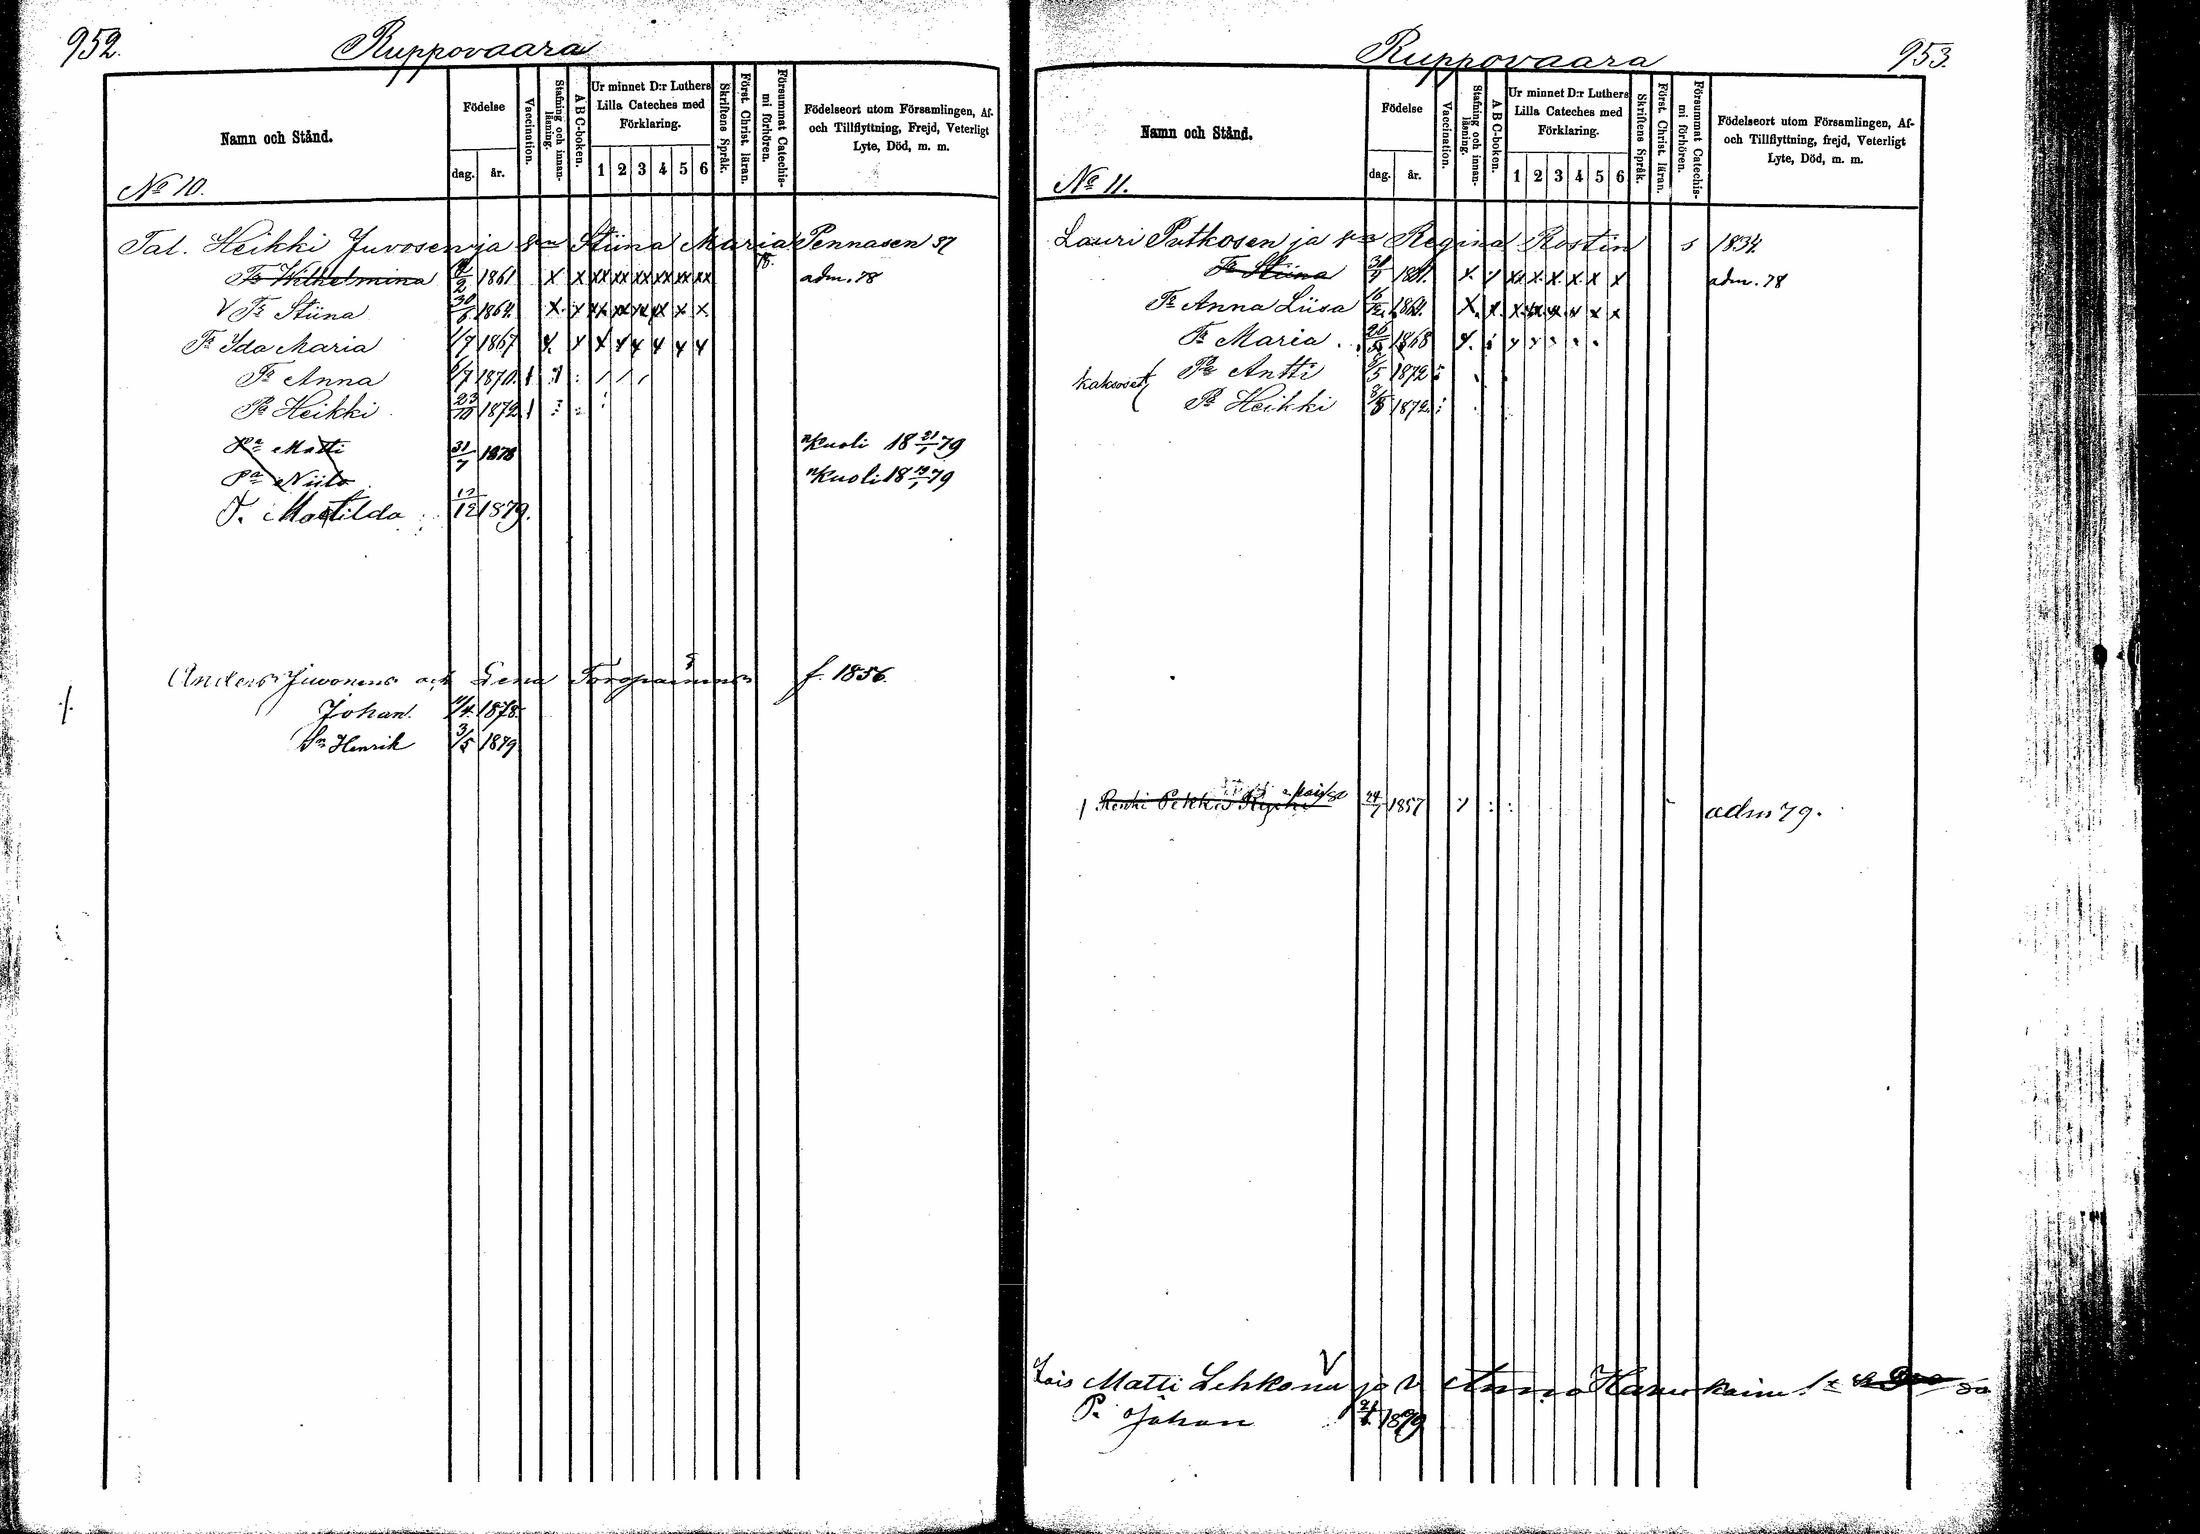 952.
Ruppovaara
Namn och Stånd.
Födelse
dag.
år.
Vaccination.
Stafning och innan-läsning.
A B C-boken.
Ur minnet D:r Luthers
Lilla Cateches med
Förklaring.
1 2 3 4 5 6
Skriftens Språk.
Först. Christ. läran.
Försummat Catechis-
mi förhören.
Födelseort utom Församlingen, Af-
och Tillflyttning, Frejd, Veterligt
Lyte, Död, m. m.
No 10.
Tal. Heikki Juvosen ja Stiina Maria Pennasen 37
Tr Wilhelmina 1861 x x xx xx xx xx xx xx adm. 78
V Tr Stiina 1864 x x xx xx xx xx x x
Tr Ida Maria 1/7 1867 x x x x x x x x
Tr Anna 1870
Pa Heikki 23/10 1872
Pa Matti 31/7 1878 kuoli 18 21/1 79
Pa Niilo kuoli 18 19/1 79
T. Matilda 12/12 1879.
Anders Juvonens och Lena Toropainens f. 1856.
Johan. 11/4 1878
Sn Henrik 3/5 1879
953.
Ruppovaara
Namn och Stånd.
Födelse
dag.
år.
Vaccination.
Stafning och innan-läsning.
A B C-boken.
Ur minnet D:r Luthers
Lilla Cateches med
Förklaring.
1 2 3 4 5 6
Skriftens Språk.
Först. Christ. läran.
Försummat Catechis-
mi förhören.
Födelseort utom Församlingen, Af-
och Tillflyttning, frejd, Veterligt
Lyte, Död, m. m.
No 11.
Lauri Putkosen ja Regina Rostin s 1834
Tr Stiina 1861. x. x xx x x x x x adm. 78
Tr Anna Liisa 1864. x x x xx xx x x x
Tr Maria 1868
kaksoset
Pa Antti 1872
Pa Heikki 1872
Renki Pekka 24/7 1857 adm 79.
Lois Matti Lehkonen ja v Anna
P. Johan 1879